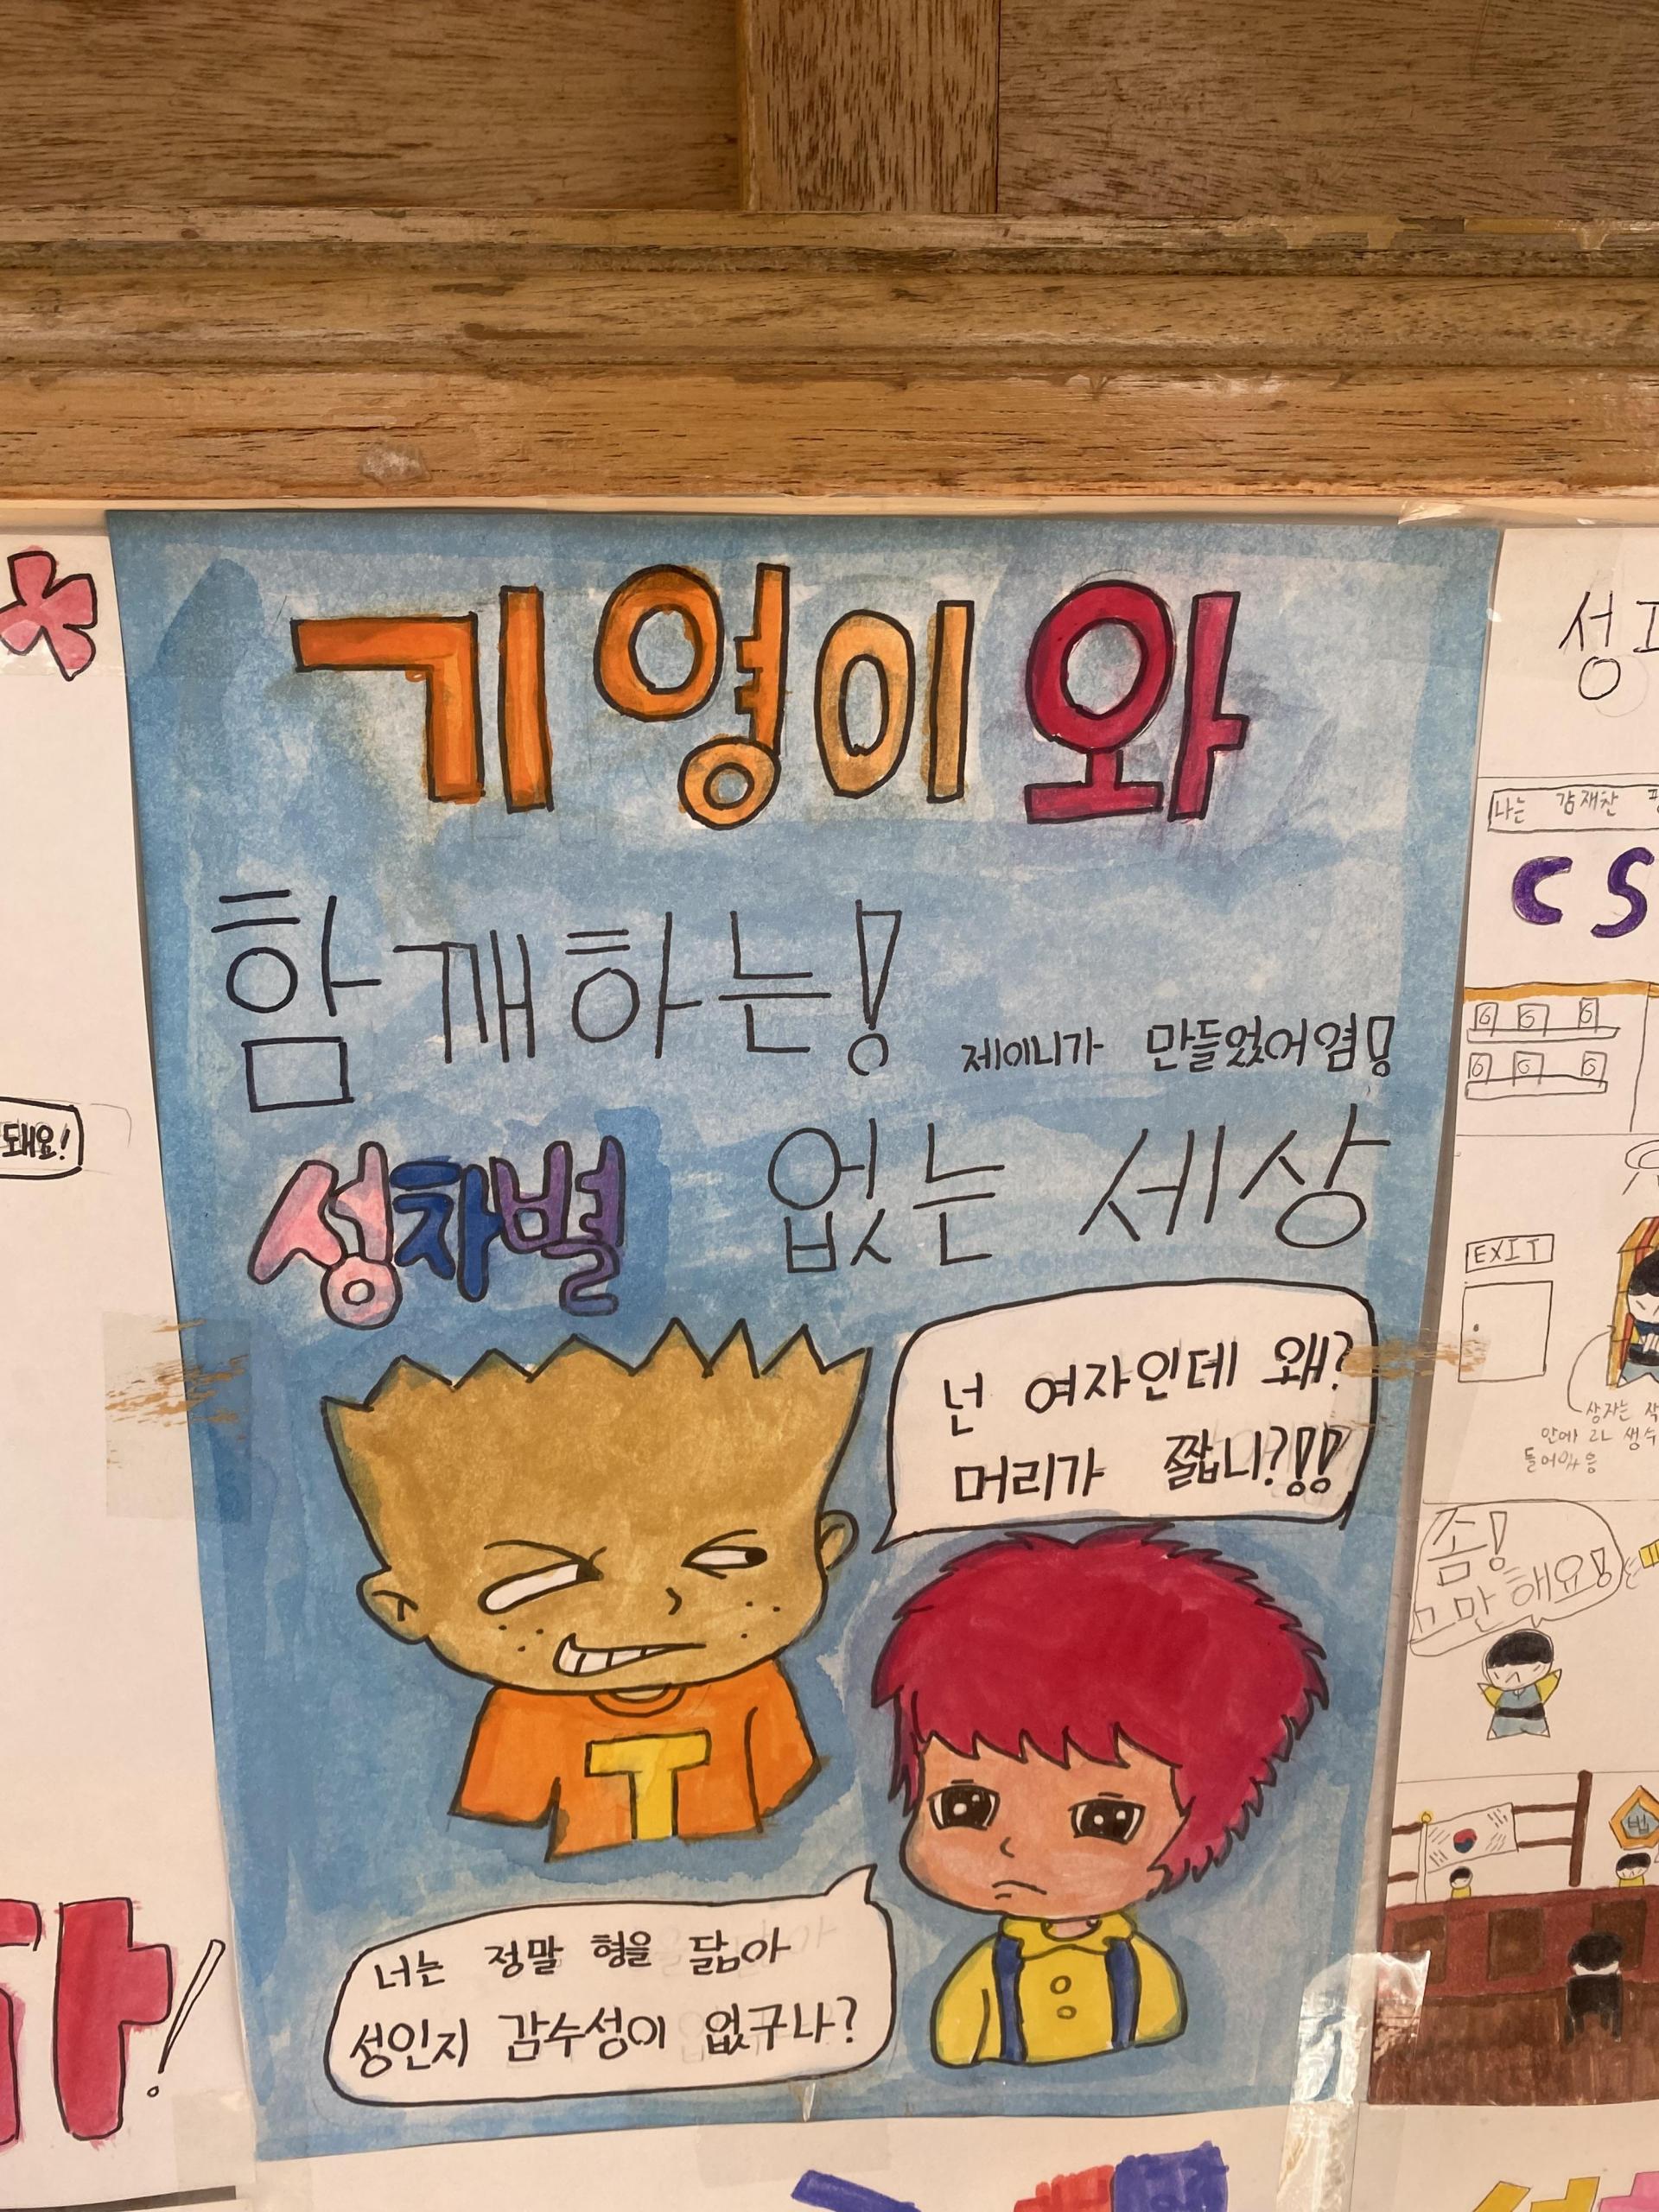 기영이와
함깨하는!
제이니가 만들었어염!
성차별 없는 세상
넌 여자인데 왜?
머리가 짧니?!!
T
너는 정말 형을 닮아
성인지 감수성이 없구나?
돼요!
나는 김재찬
CS
EXIT
상자는
안에 2L 생수
들어있음
좀!
그만해요!
법